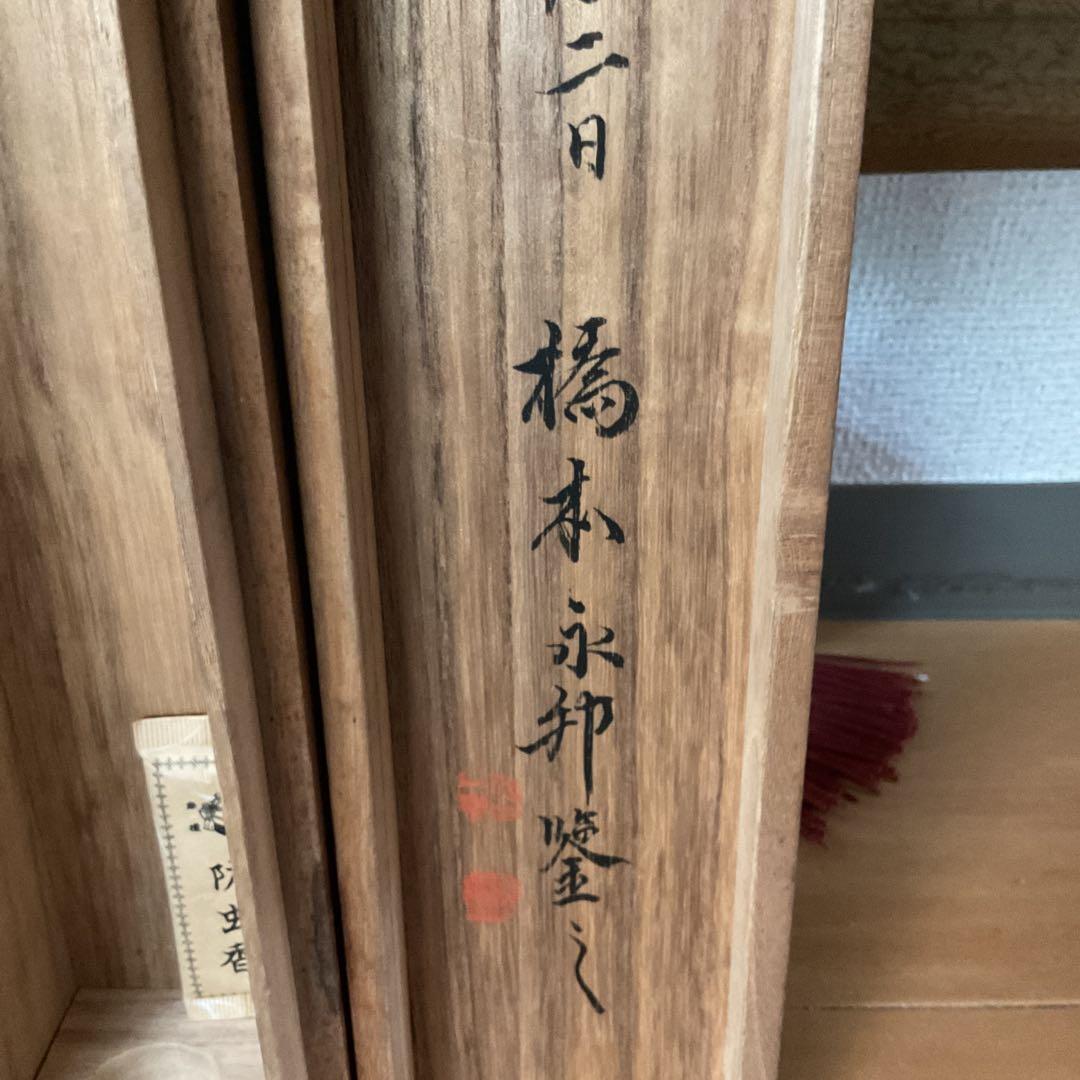 二日 橋本永邦鑒之
防虫香